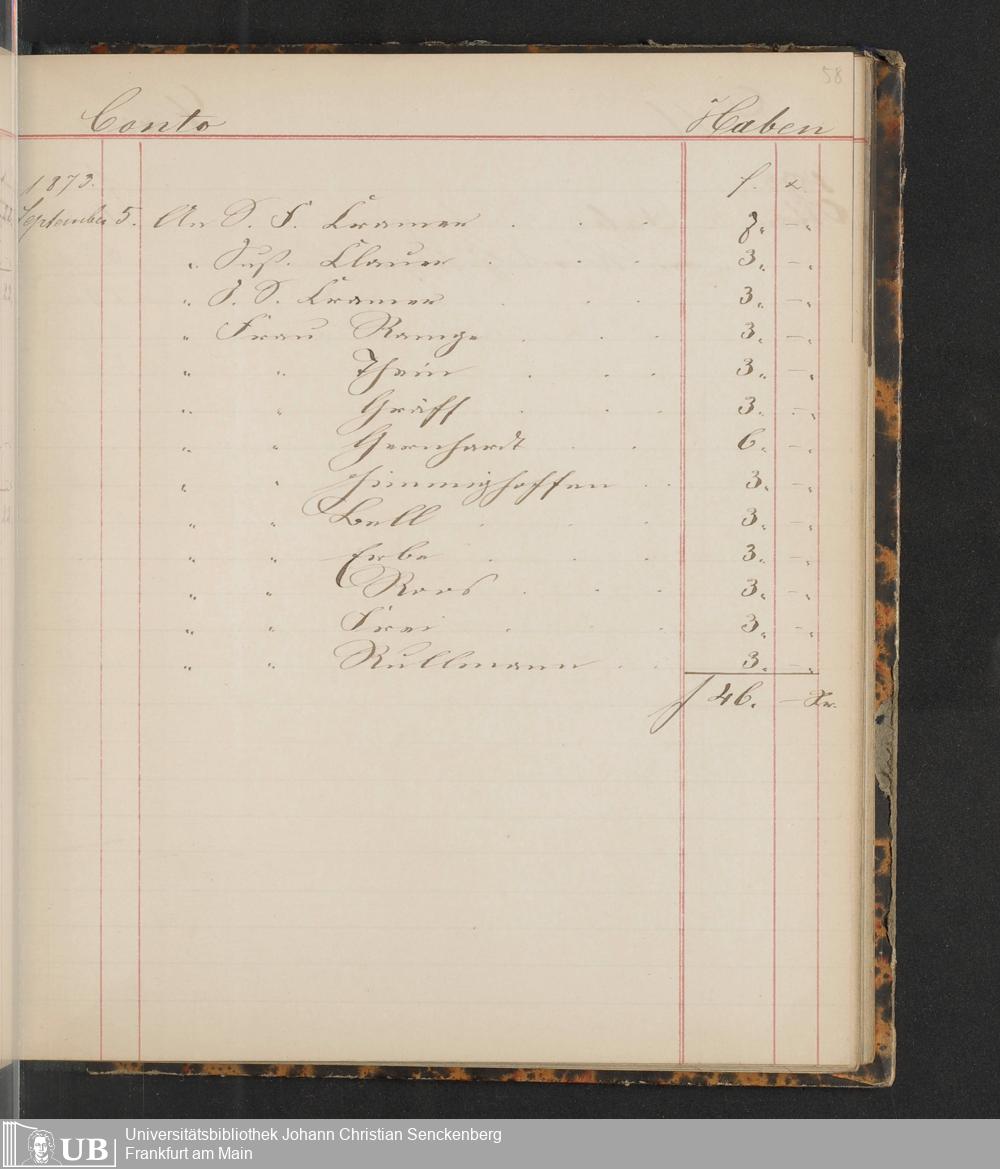 58
Conto Haben
1873. f. x.
September 5. An S. F. Kramer . . . 7. –.
" Sus. Clauer . . . 3. –.
" J. S. Kramer . . . 3. –.
" Frau Ramge . . . 3. –.
" " Thein . . . 3. –.
" " Gräff . . . 3. –.
" " Gernhardt . . 6. –.
" " Himmighoffen . . 3. –.
" " Bell . . . 3. –.
" " Erbe . . . 3. –.
" " Roos . . . 3. –.
" " Frei . . . 3. –.
" " Rullmann . . 3. –.
f 46. – Xr.
UB Universitätsbibliothek Johann Christian Senckenberg
Frankfurt am Main